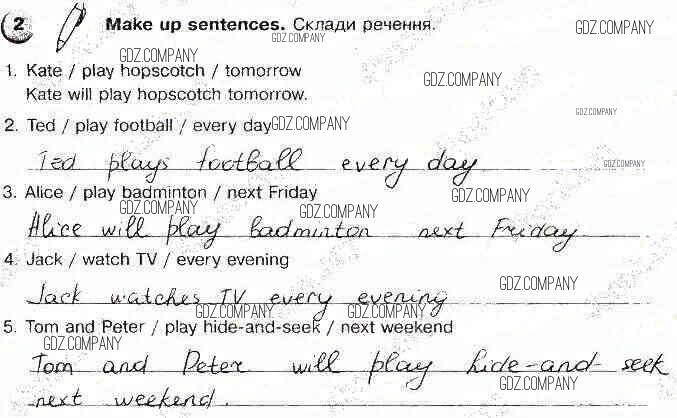 2 Make up sentences. Склади речення.
GDZ.COMPANY
GDZ.COMPANY
1. Kate / play hopscotch / tomorrow
GDZ.COMPANY
Kate will play hopscotch tomorrow.
GDZ.COMPANY
2. Ted / play football / every day
GDZ.COMPANY
Ted plays football every day
GDZ.COMPANY
3. Alice / play badminton / next Friday
GDZ.COMPANY
GDZ.COMPANY
GDZ.COMPANY
Alice will play badminton next Friday
4. Jack / watch TV / every evening
GDZ.COMPANY
Jack watches TV every evening
GDZ.COMPANY
GDZ.COMPANY
5. Tom and Peter / play hide-and-seek / next weekend
GDZ.COMPANY
GDZ.COMPANY
Tom and Peter will play hide-and-seek
GDZ.COMPANY
next weekend.